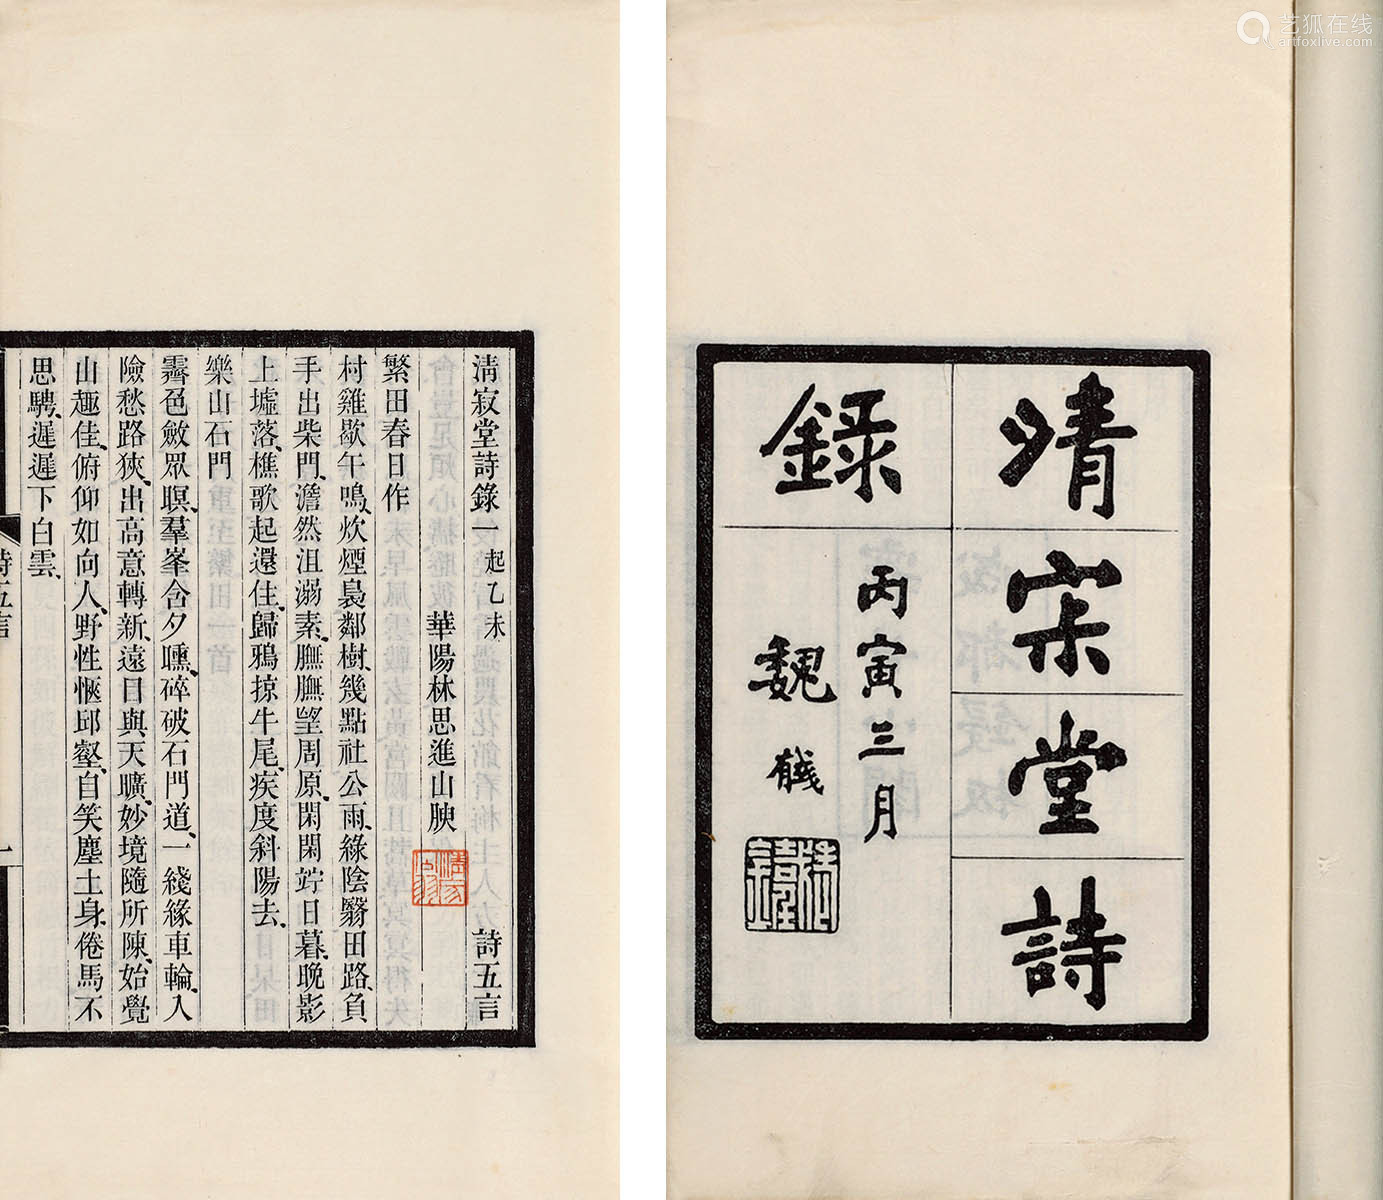 艺狐在线
artfoxlive.com
清宋堂詩
錄
丙寅三月
魏
清寂堂詩錄一 起乙未 詩五言
華陽林思進山腴
繁田春日作
村雞歇午鳴炊煙裊鄰樹幾點社公雨綠陰翳田路負
手出柴門澹然沮溺素膴膴望周原閑閑竚日暮晚影
上墟落樵歌起還住歸鴉掠牛尾疾度斜陽去
樂山石門
霽色斂眾暝羣峯含夕曛碎破石門道一綫緣車輪入
險愁路狹出高意轉新遠目與天曠妙境隨所陳始覺
山趣佳俯仰如向人野性愜邱壑自笑塵土身倦馬不
思騁遲遲下白雲
詩五言
一